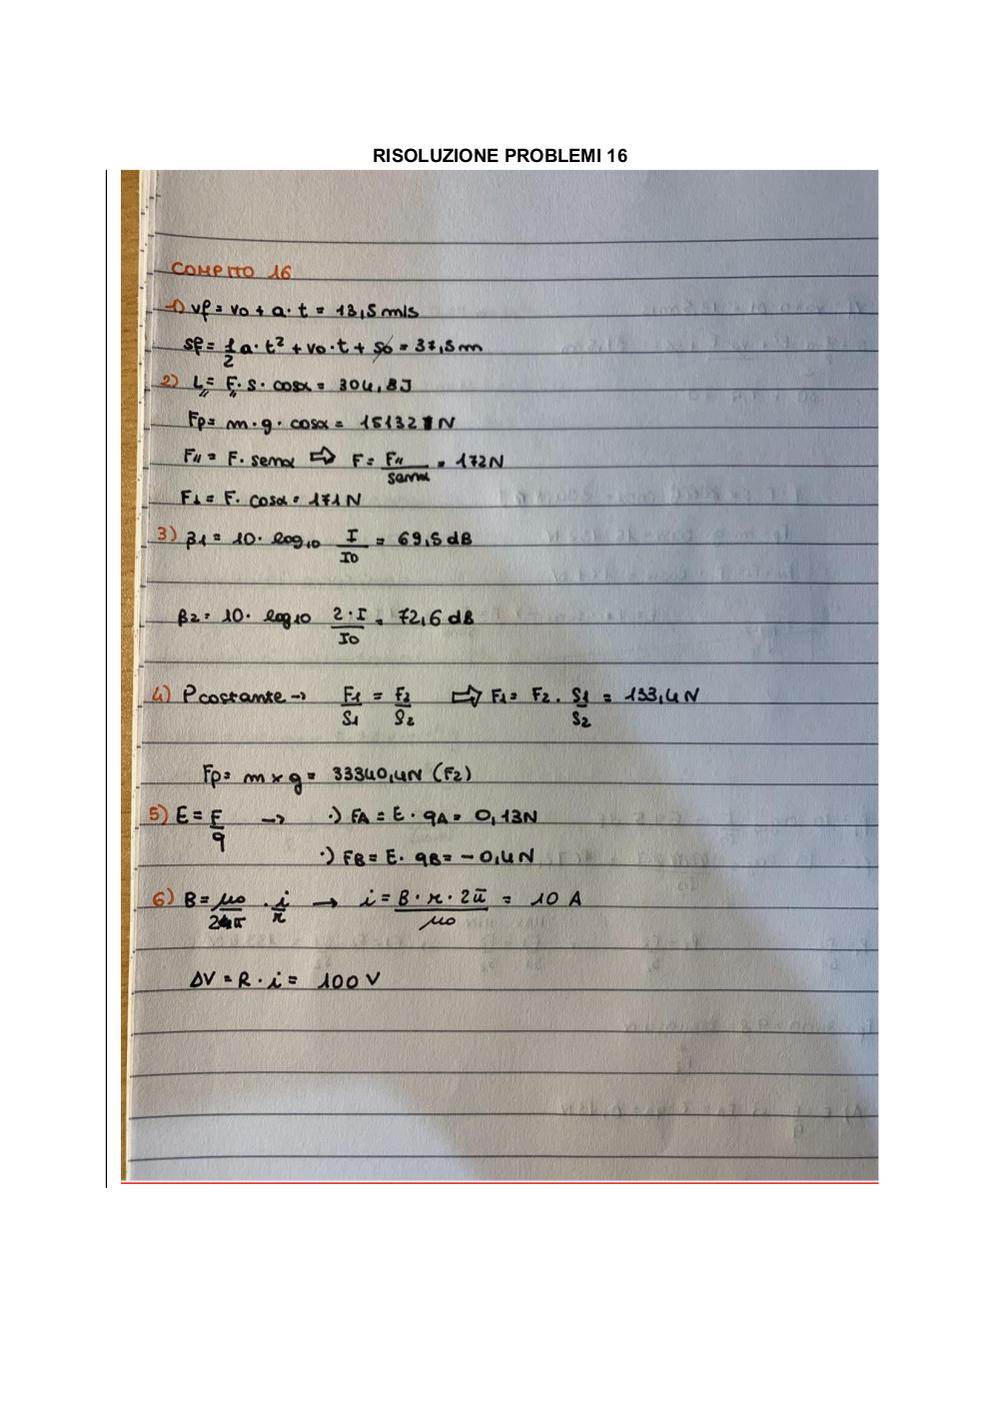 RISOLUZIONE PROBLEMI 16
COMPITO 16
1) vf = v0 + a · t = 13,5 m/s
sf = 1/2 a · t² + v0 · t + s0 = 37,5 m
2) L = F · s · cosα = 304,8 J
Fp = m · g · cosα = 15132 N
F// = F · senα ⇨ F = F///senα = 172 N
F⊥ = F · cosα = 171 N
3) β1 = 10 · log10 I/I0 = 69,5 dB
β2 = 10 · log10 2·I/I0 = 72,6 dB
4) P costante → F1/S1 = F2/S2 ⇨ F1 = F2 · S1/S2 = 133,4 N
Fp = m × g = 33340,4 N (F2)
5) E = F/q → ·) FA = E · qA = 0,13 N
·) FB = E · qB = - 0,4 N
6) B = μ0/2π · i/r → i = B · r · 2π/μ0 = 10 A
ΔV = R · i = 100 V